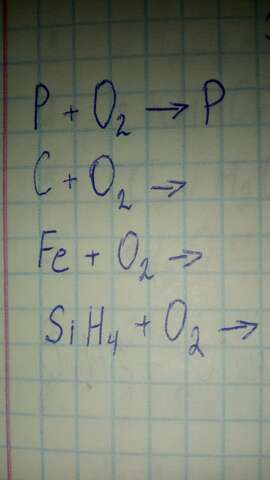 P + O₂ → P
C + O₂ →
Fe + O₂ →
SiH₄ + O₂ →